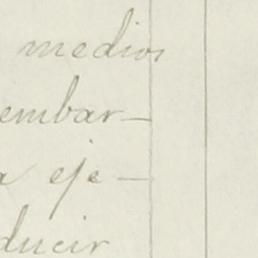 medios
embar-
a eje-
ducir